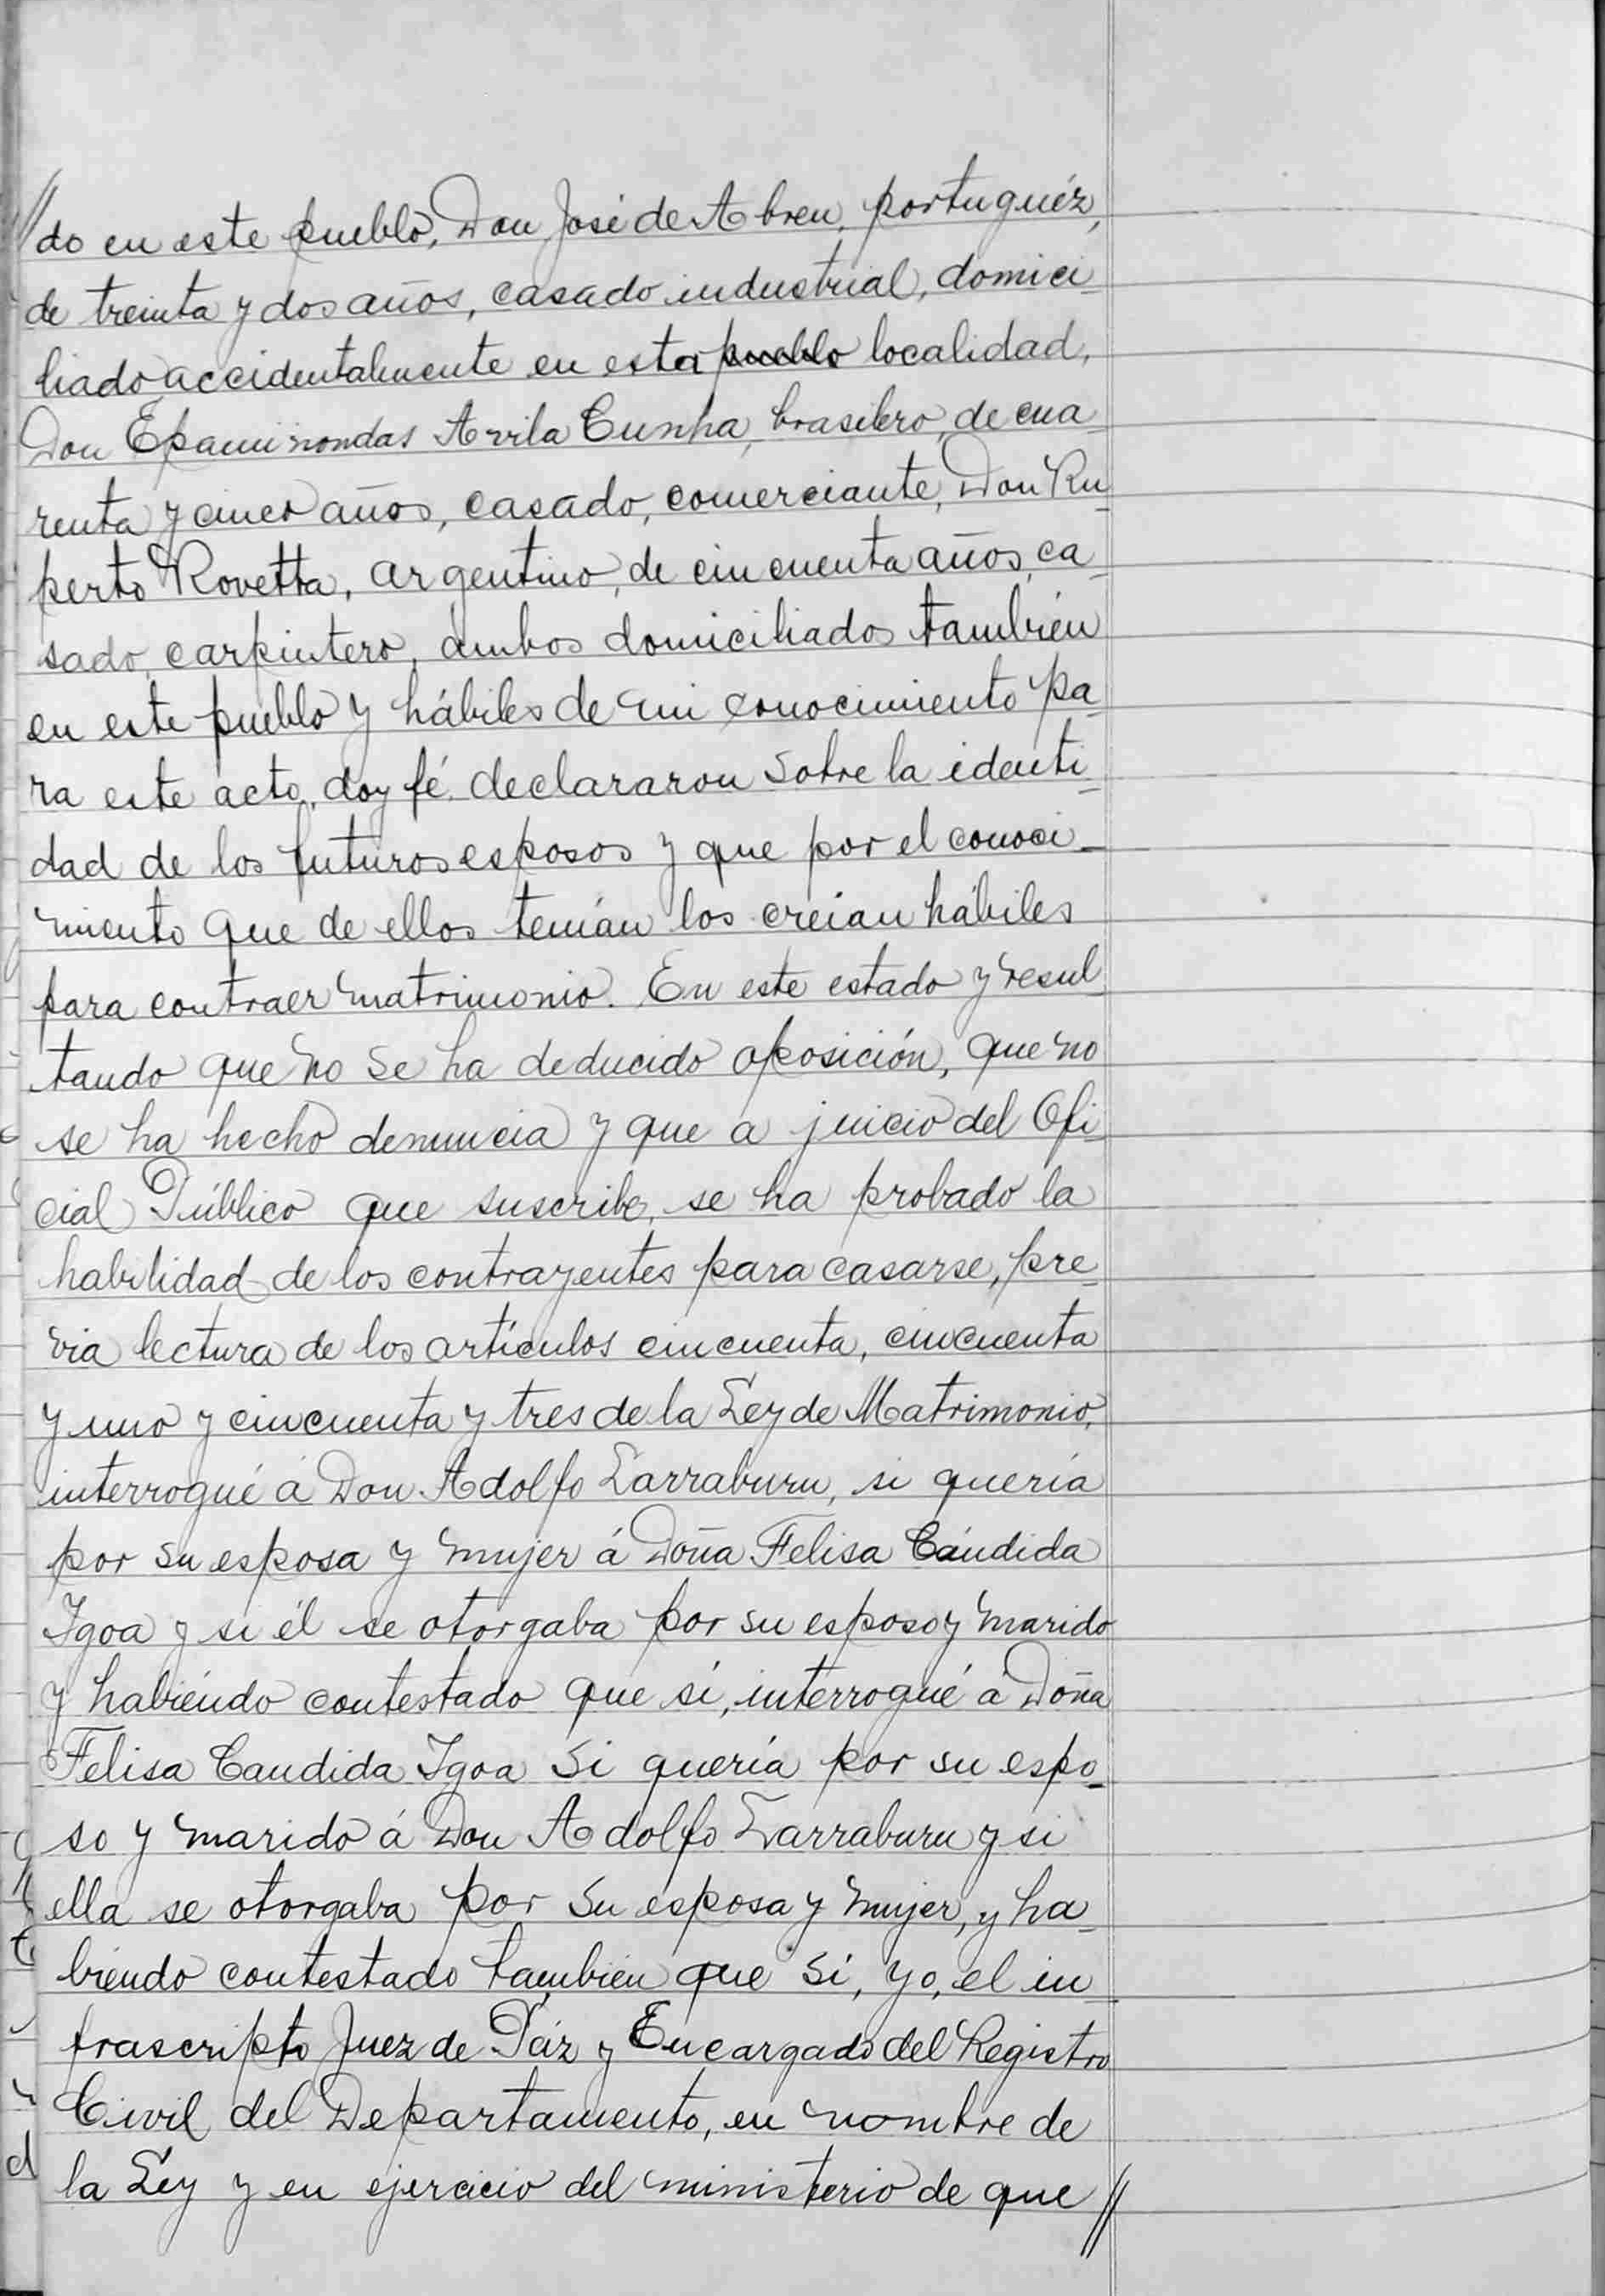 // do en este pueblo, Don José de Abreu, portuguéz,
de treinta y dos años, casado industrial, domici-
liado accidentalmente en esta pueblo localidad,
Don Epaminondas Avila Cunha, brasilero, de cua-
renta y cinco años, casado, comerciante, Don Ru-
perto Rovetta, argentino, de cincuenta años, ca-
sado, carpintero, ambos domiciliados también
en este pueblo y hábiles de mi conocimiento pa-
ra este acto, doy fé, declararon sobre la identi-
dad de los futuros esposos y que por el conoci-
miento que de ellos tenían los creían hábiles
para contraer matrimonio. En este estado y resul-
tando que no se ha deducido oposición, que no
se ha hecho denuncia y que a juicio del Ofi-
cial Público que suscribe, se ha probado la
habilidad de los contrayentes para casarse, pre-
via lectura de los artículos cincuenta, cincuenta
y uno y cincuenta y tres de la Ley de Matrimonio,
interrogué á Don Adolfo Larraburu, si quería
por su esposa y mujer á Doña Felisa Cándida
Igoa y si él se otorgaba por su esposo y marido
y habiéndo contestado que sí, interrogué á Doña
Felisa Candida Igoa si quería por su espo-
so y marido á Don Adolfo Larraburu y si
ella se otorgaba por su esposa y mujer, y ha-
biéndo contestado tambien que sí, yo, el in-
frascripto Juez de Páz y Encargado del Registro
Civil del Departamento, en nombre de
la Léy y en ejercicio del ministerio de que //